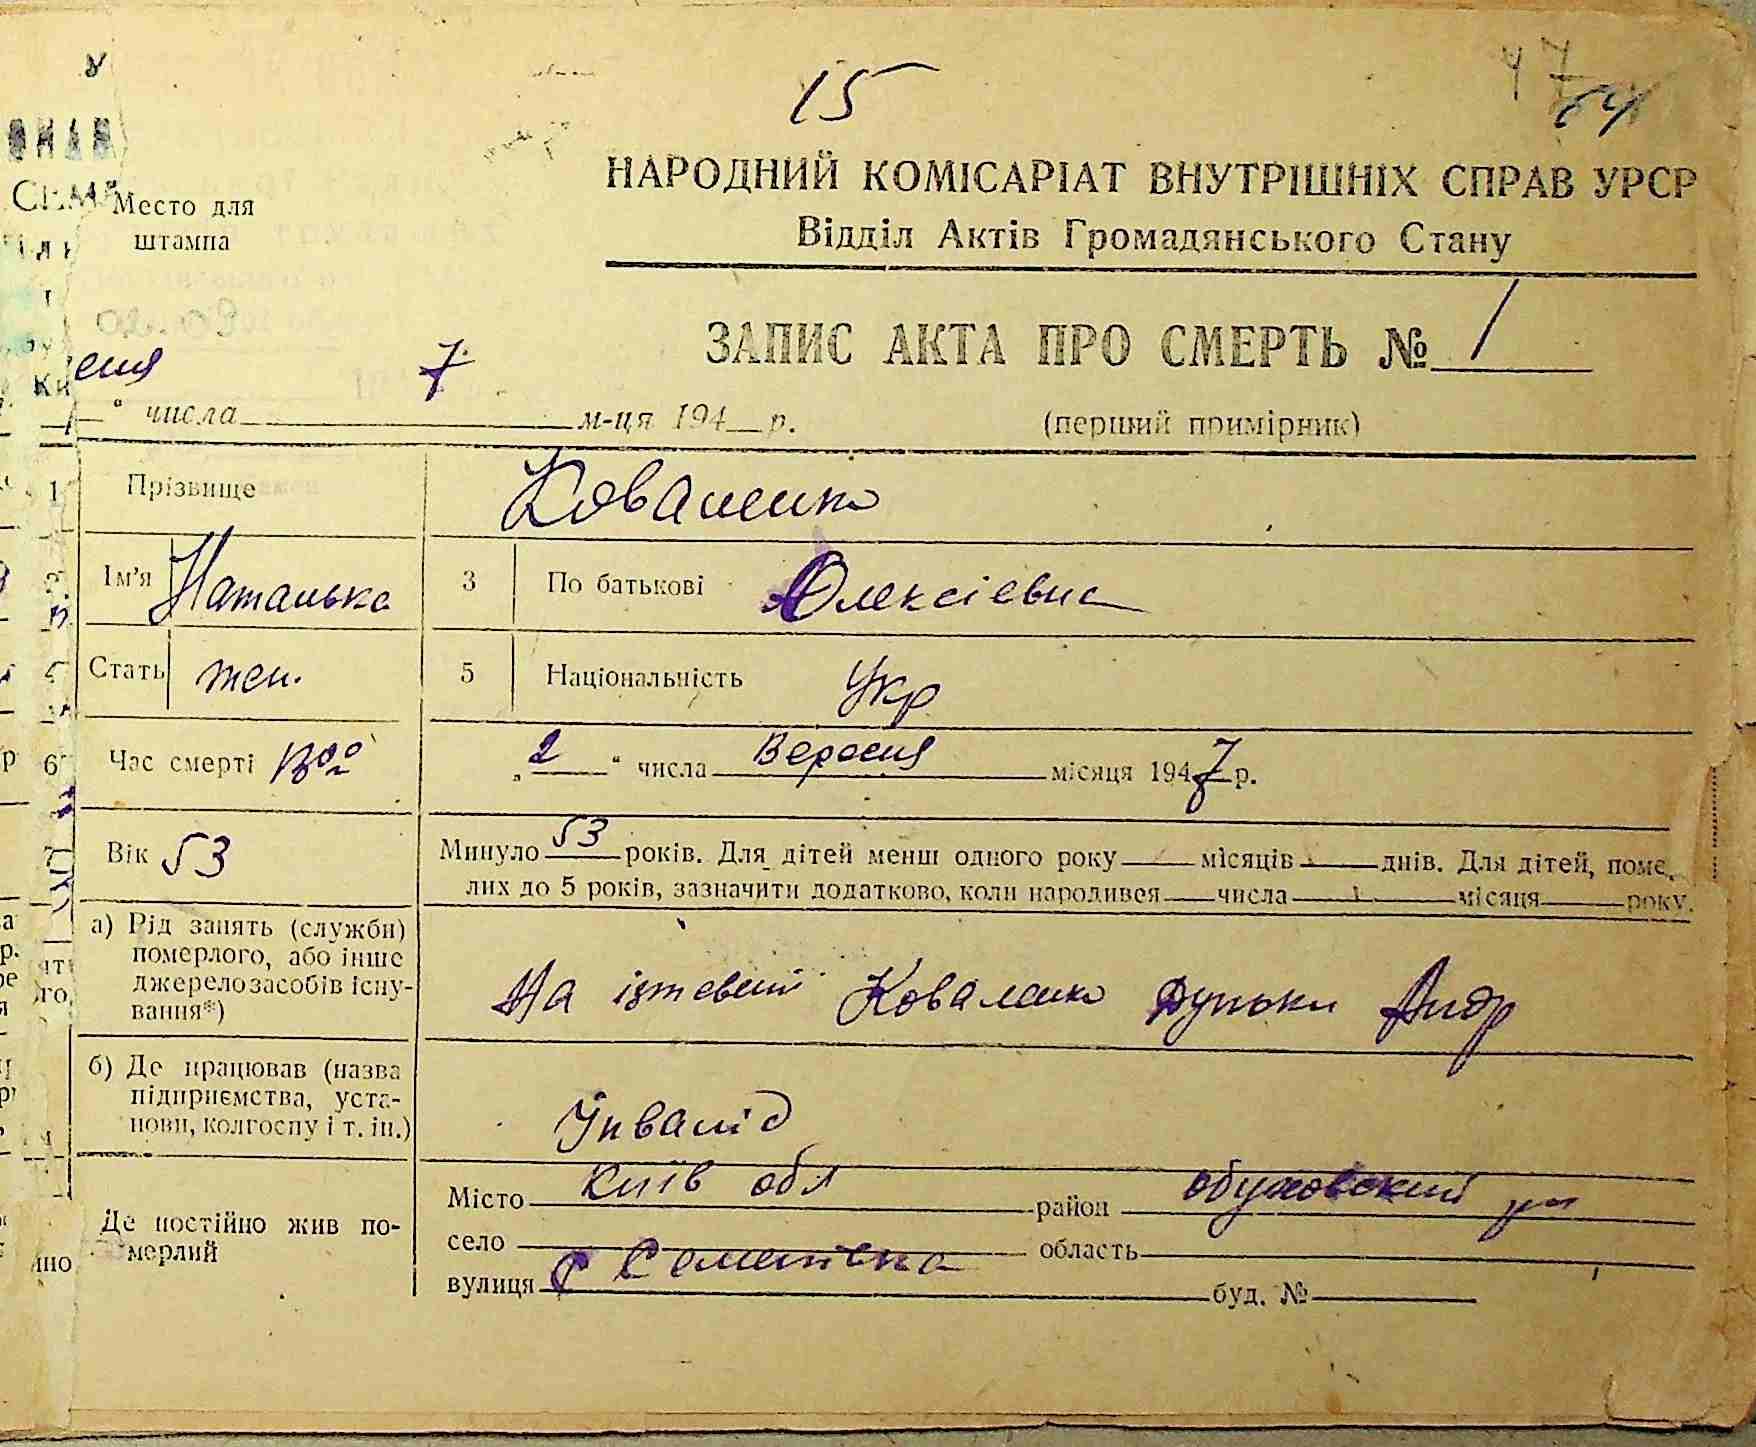 15
47
64
НАРОДНИЙ КОМІСАРІАТ ВНУТРІШНІХ СПРАВ УРСР
Відділ Актів Громадянського Стану
Место для
штампа
ЗАПИС АКТА ПРО СМЕРТЬ № 1
(перший примірник)
еня 7
" числа м-ця 194 р.
1 Прізвище Коваленко
Ім'я Наталька 3 По батькові Олексіевна
Стать жен. 5 Національність Укр
6 Час смерті „ 2 " числа Вересня місяця 1947 р.
Вік 53 Минуло 53 років. Для дітей менш одного року місяців днів. Для дітей, поме
лих до 5 років, зазначити додатково, коли народився числа місяця року.
а) Рід занять (служби)
померлого, або інше
джерело засобів існу-
вання*)
На Коваленко Андр
б) Де працював (назва
підприємства, уста-
нови, колгоспу і т. ін.)
Інвалід
Де постійно жив по-
мерлий
Місто Київ обл район обуховский рн
село область
вулиця с Семенівка буд. №